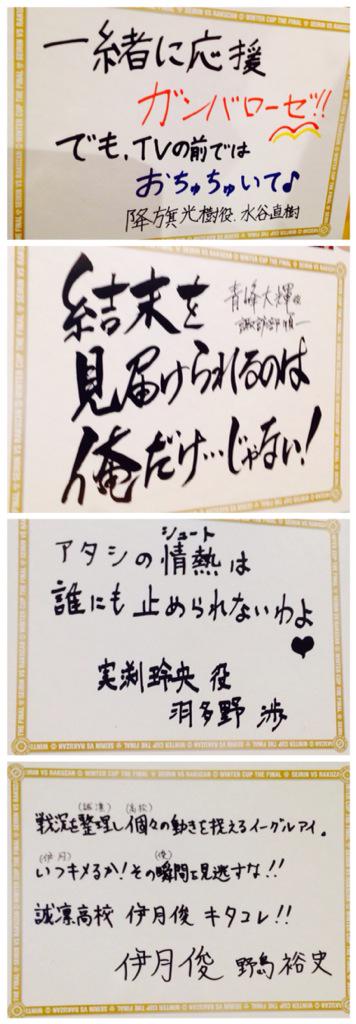 一緒に応援
ガンバローゼ!!
でも、TVの前では
おちゅちゅいて♪
降旗光樹役、水谷直樹
青峰大輝役
諏訪部順一
結末を
見届けられるのは
俺だけ…じゃない!
シュート
アタシの情熱は
誰にも止められないわよ
♥
実渕玲央役
羽多野渉
(誠凛) (高校)
戦況を整理し個々の動きを捉えるイーグルアイ。
(伊月) (俊)
いつキメるか!その瞬間を見逃すな!!
誠凛高校 伊月俊 キタコレ!!
伊月俊 野島裕史
SEIRIN VS RAKUZAN WINTER CUP THE FINAL